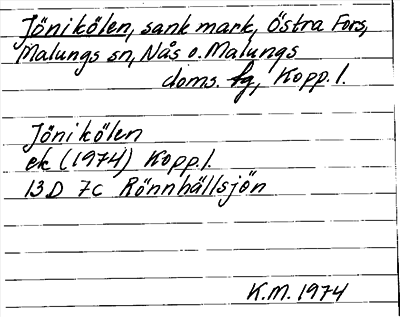 Jönikölen, sank mark, Östra Fors,
Malungs sn, Nås o. Malungs
doms. fg, Kopp. l.
Jönikölen
ek (1974) Kopp. l.
13 D 7c Rönnhällsjön
K.M. 1974